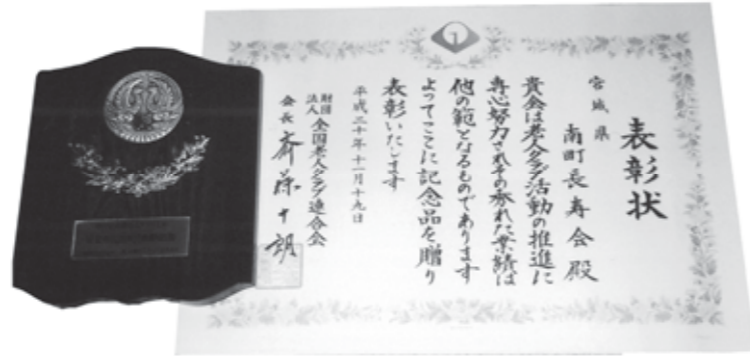 表彰状
宮城県
南町長寿会殿
貴会は老人クラブ活動の推進に
専心努力されその秀れた業績は
他の範となるものであります
よってここに記念品を贈り
表彰いたします
平成二十年十一月十九日
財団法人 全国老人クラブ連合会
会長 斎藤十朗